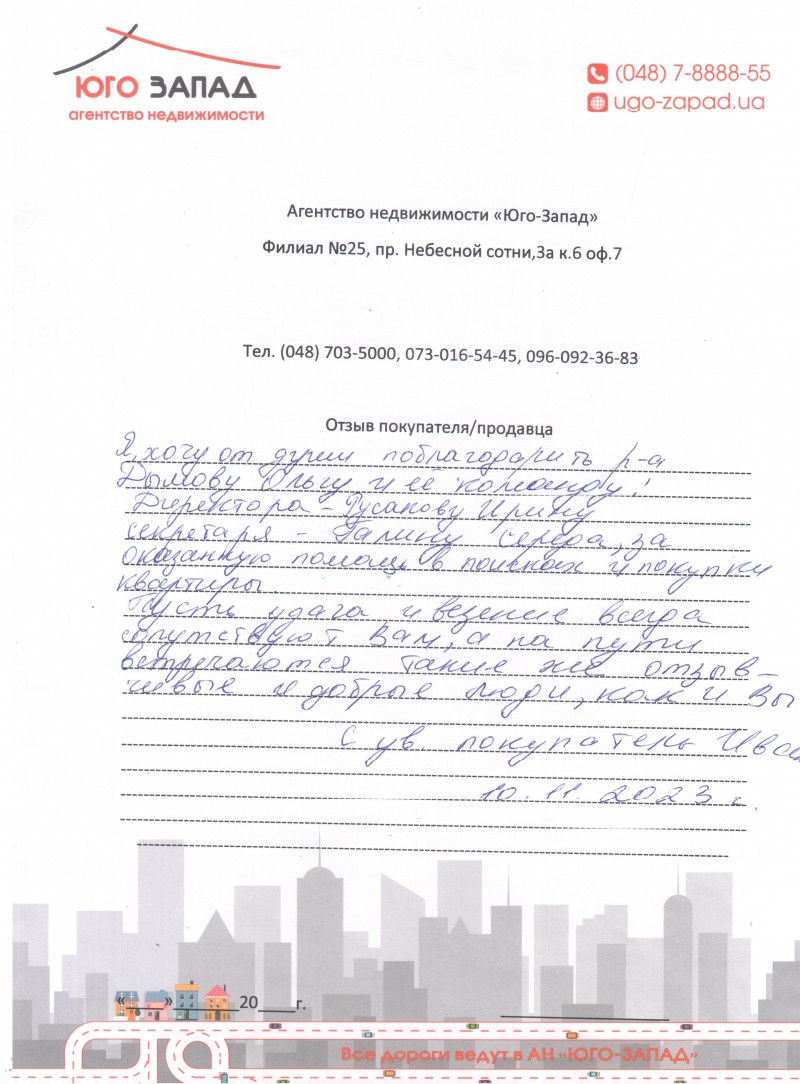 ЮГО ЗАПАД
агентство недвижимости
(048) 7-8888-55
ugo-zapad.ua
Агентство недвижимости «Юго-Запад»
Филиал №25, пр. Небесной сотни,3а к.6 оф.7
Тел. (048) 703-5000, 073-016-54-45, 096-092-36-83
Отзыв покупателя/продавца
Я, хочу от души поблагодарить р-а
Дымову Ольгу и её команду!
Директора – Русакову Ирину
секретаря – Галину Середа, за
оказанную помощь в поисках и покупки
квартиры.
Пусть удача и везение всегда
сопутствуют Вам, а на пути
встречаются такие же отзыв-
чивые и добрые люди, как и Вы
С ув. покупатель
10.11.2023 г.
« » 20 г.
Все дороги ведут в АН «ЮГО-ЗАПАД»